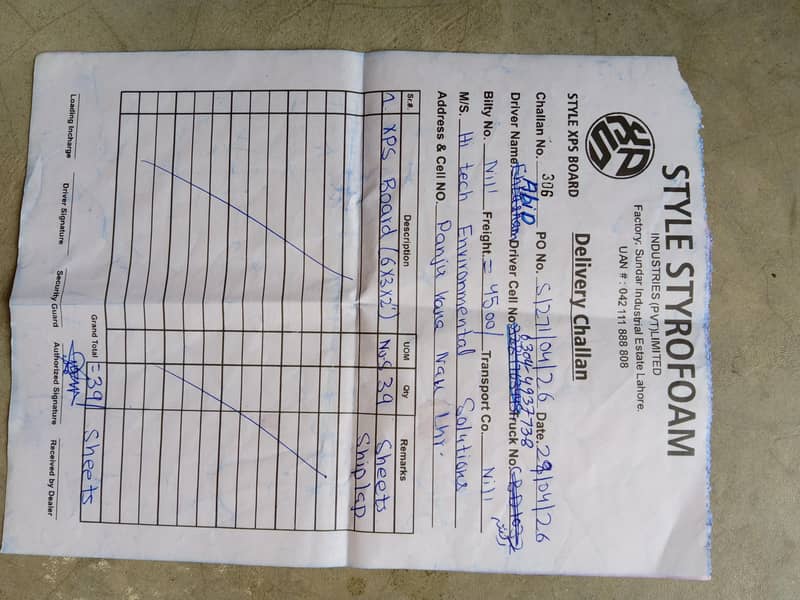 STYLE STYROFOAM
INDUSTRIES (PVT)LIMITED
Factory. Sundar Industrial Estate Lahore.
UAN # : 042 111 888 808
XPS
STYLE XPS BOARD
Delivery Challan
Challan No. 306 PO No. S/27/04/26 Date. 29/04/26
Driver Name Abid Driver Cell No 0304 4937738 Truck No
Bilty No. Nill Freight. = 4500/ Transport Co. Nill
M/S. Hi tech Environmental Solutions
Address & Cell NO. Panju Lhr.
Sr.#. Description UOM Qty Remarks
1 XPS Board (6x3x2") Nos 39 Sheets
Shiplap
Grand Total =39/ Sheets
Loading Incharge Driver Signature Security Guard Authorized Signature Received by Dealer